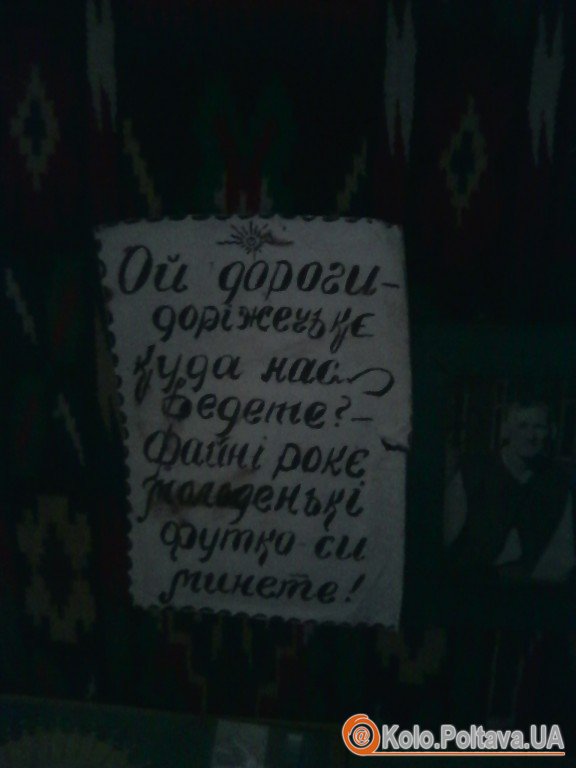 Ой дороги-
доріженькє
куда нас
ведете?-
Файні рокє
молоденькі
футко си
минете!
@Kolo.Poltava.UA